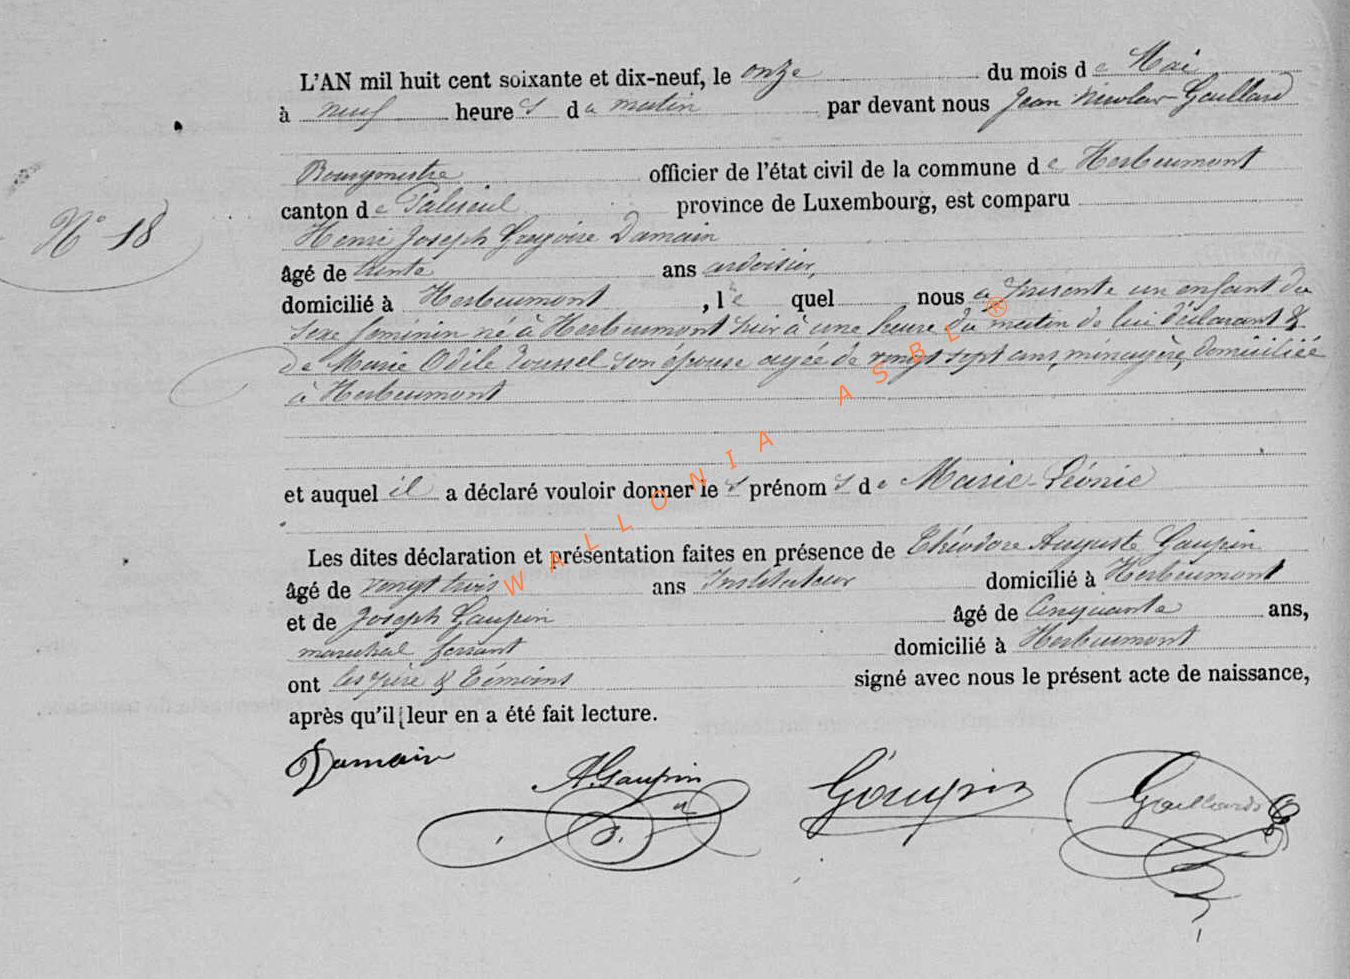 L'AN mil huit cent soixante et dix-neuf, le onze du mois de Mai
à neuf heures du matin par devant nous Jean Nicolas Gaillard
Bourgmestre officier de l'état civil de la commune de Herbeumont
N° 18
canton de Paliseul province de Luxembourg, est comparu
Henri Joseph Grégoire Damain
âgé de trente ans ardoisier,
domicilié à Herbeumont, le quel nous a présenté un enfant du
sexe féminin né à Herbeumont hier à une heure du matin de lui déclarant &
de Marie Odile Roussel son épouse agée de vingt sept ans, ménagère, domiciliée
à Herbeumont
et auquel il a déclaré vouloir donner les prénoms de Marie-Léonie
Les dites déclaration et présentation faites en présence de Théodore Auguste Gaupin
âgé de vingt trois ans Instituteur domicilié à Herbeumont
et de Joseph Gaupin âgé de Cinquante ans,
maréchal ferrant domicilié à Herbeumont
ont les père & témoins signé avec nous le présent acte de naissance,
après qu'il leur en a été fait lecture.
Damain A. Gaupin Goupin Gaillard
WALLONIA ASBL ®